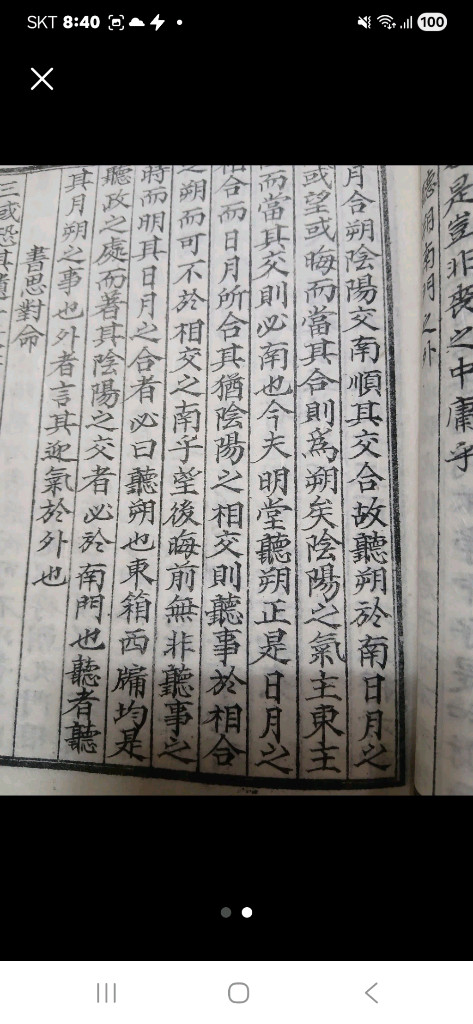 SKT 8:40 100
是豈非喪之中庸乎
聽朔南門之外
月合朔陰陽交南順其交合故聽朔於南日月之
或望或晦而當其合則爲朔矣陰陽之氣主東主
而當其交則必南也今夫明堂聽朔正是日月之
相合而日月所合其猶陰陽之相交則聽事於相合
朔而可不於相交之南乎望後晦前無非聽事之
時而明其日月之合者必曰聽朔也東箱西牖均是
聽政之處而著其陰陽之交者必於南門也聽者聽
其月朔之事也外者言其迎氣於外也
書思對命
三或恐其